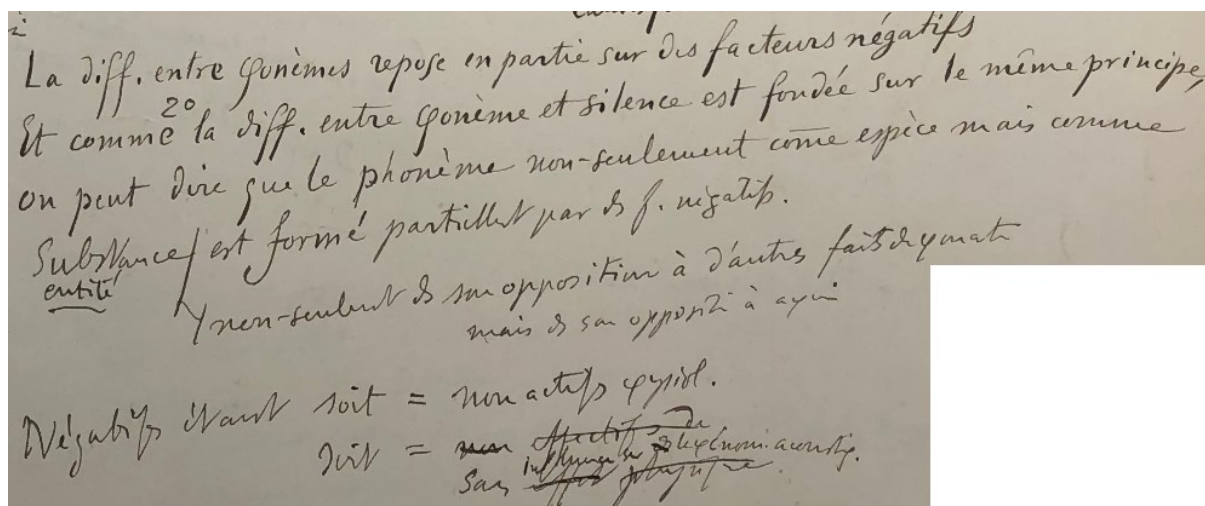 La diff. entre φonèmes repose en partie sur des facteurs négatifs
Et comme 2° la diff. entre φonème et silence est fondée sur le même principe,
on peut dire que le phonème non-seulement come espèce mais comme
Substance/ est formé partiellt par ds f. négatifs.
entité
non-seulmt ds son opposition à d'autres faits de φonat.
mais ds son oppositi à
Négatifs étant soit = non actifs φysiol.
soit = non effectifs de
sans influence sur le φénom. acoustiq.